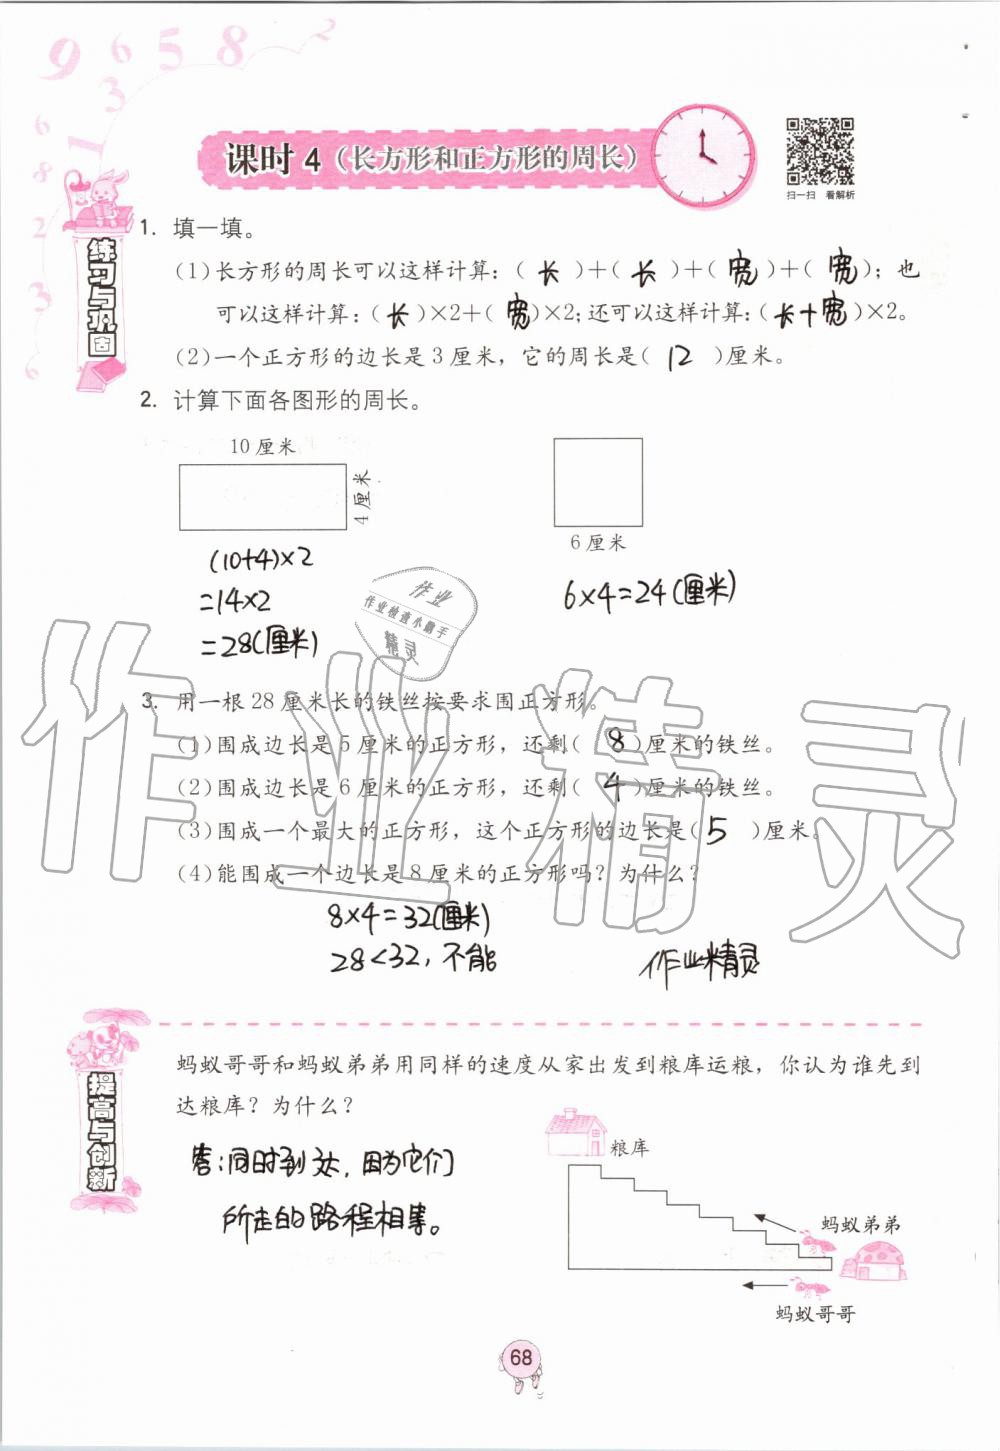 9 6 5 8 2
3
6 1
8
2
3
6
课时 4（长方形和正方形的周长）
扫一扫 看解析
练习与巩固
1. 填一填。
(1)长方形的周长可以这样计算：( 长 )+( 长 )+( 宽 )+( 宽 )；也
可以这样计算：( 长 )×2+( 宽 )×2；还可以这样计算：( 长+宽 )×2。
(2)一个正方形的边长是 3 厘米，它的周长是( 12 )厘米。
2. 计算下面各图形的周长。
10 厘米
4 厘米
6 厘米
(10+4)×2
=14×2
=28(厘米)
6×4=24(厘米)
作业
作业检查小助手
精灵
作业精灵
3. 用一根 28 厘米长的铁丝按要求围正方形。
(1)围成边长是 5 厘米的正方形，还剩( 8 )厘米的铁丝。
(2)围成边长是 6 厘米的正方形，还剩( 4 )厘米的铁丝。
(3)围成一个最大的正方形，这个正方形的边长是( 5 )厘米。
(4)能围成一个边长是 8 厘米的正方形吗？为什么？
8×4=32(厘米)
28<32，不能
作业精灵
提高与创新
蚂蚁哥哥和蚂蚁弟弟用同样的速度从家出发到粮库运粮，你认为谁先到
达粮库？为什么？
答：同时到达，因为它们
所走的路程相等。
粮库
蚂蚁弟弟
蚂蚁哥哥
68